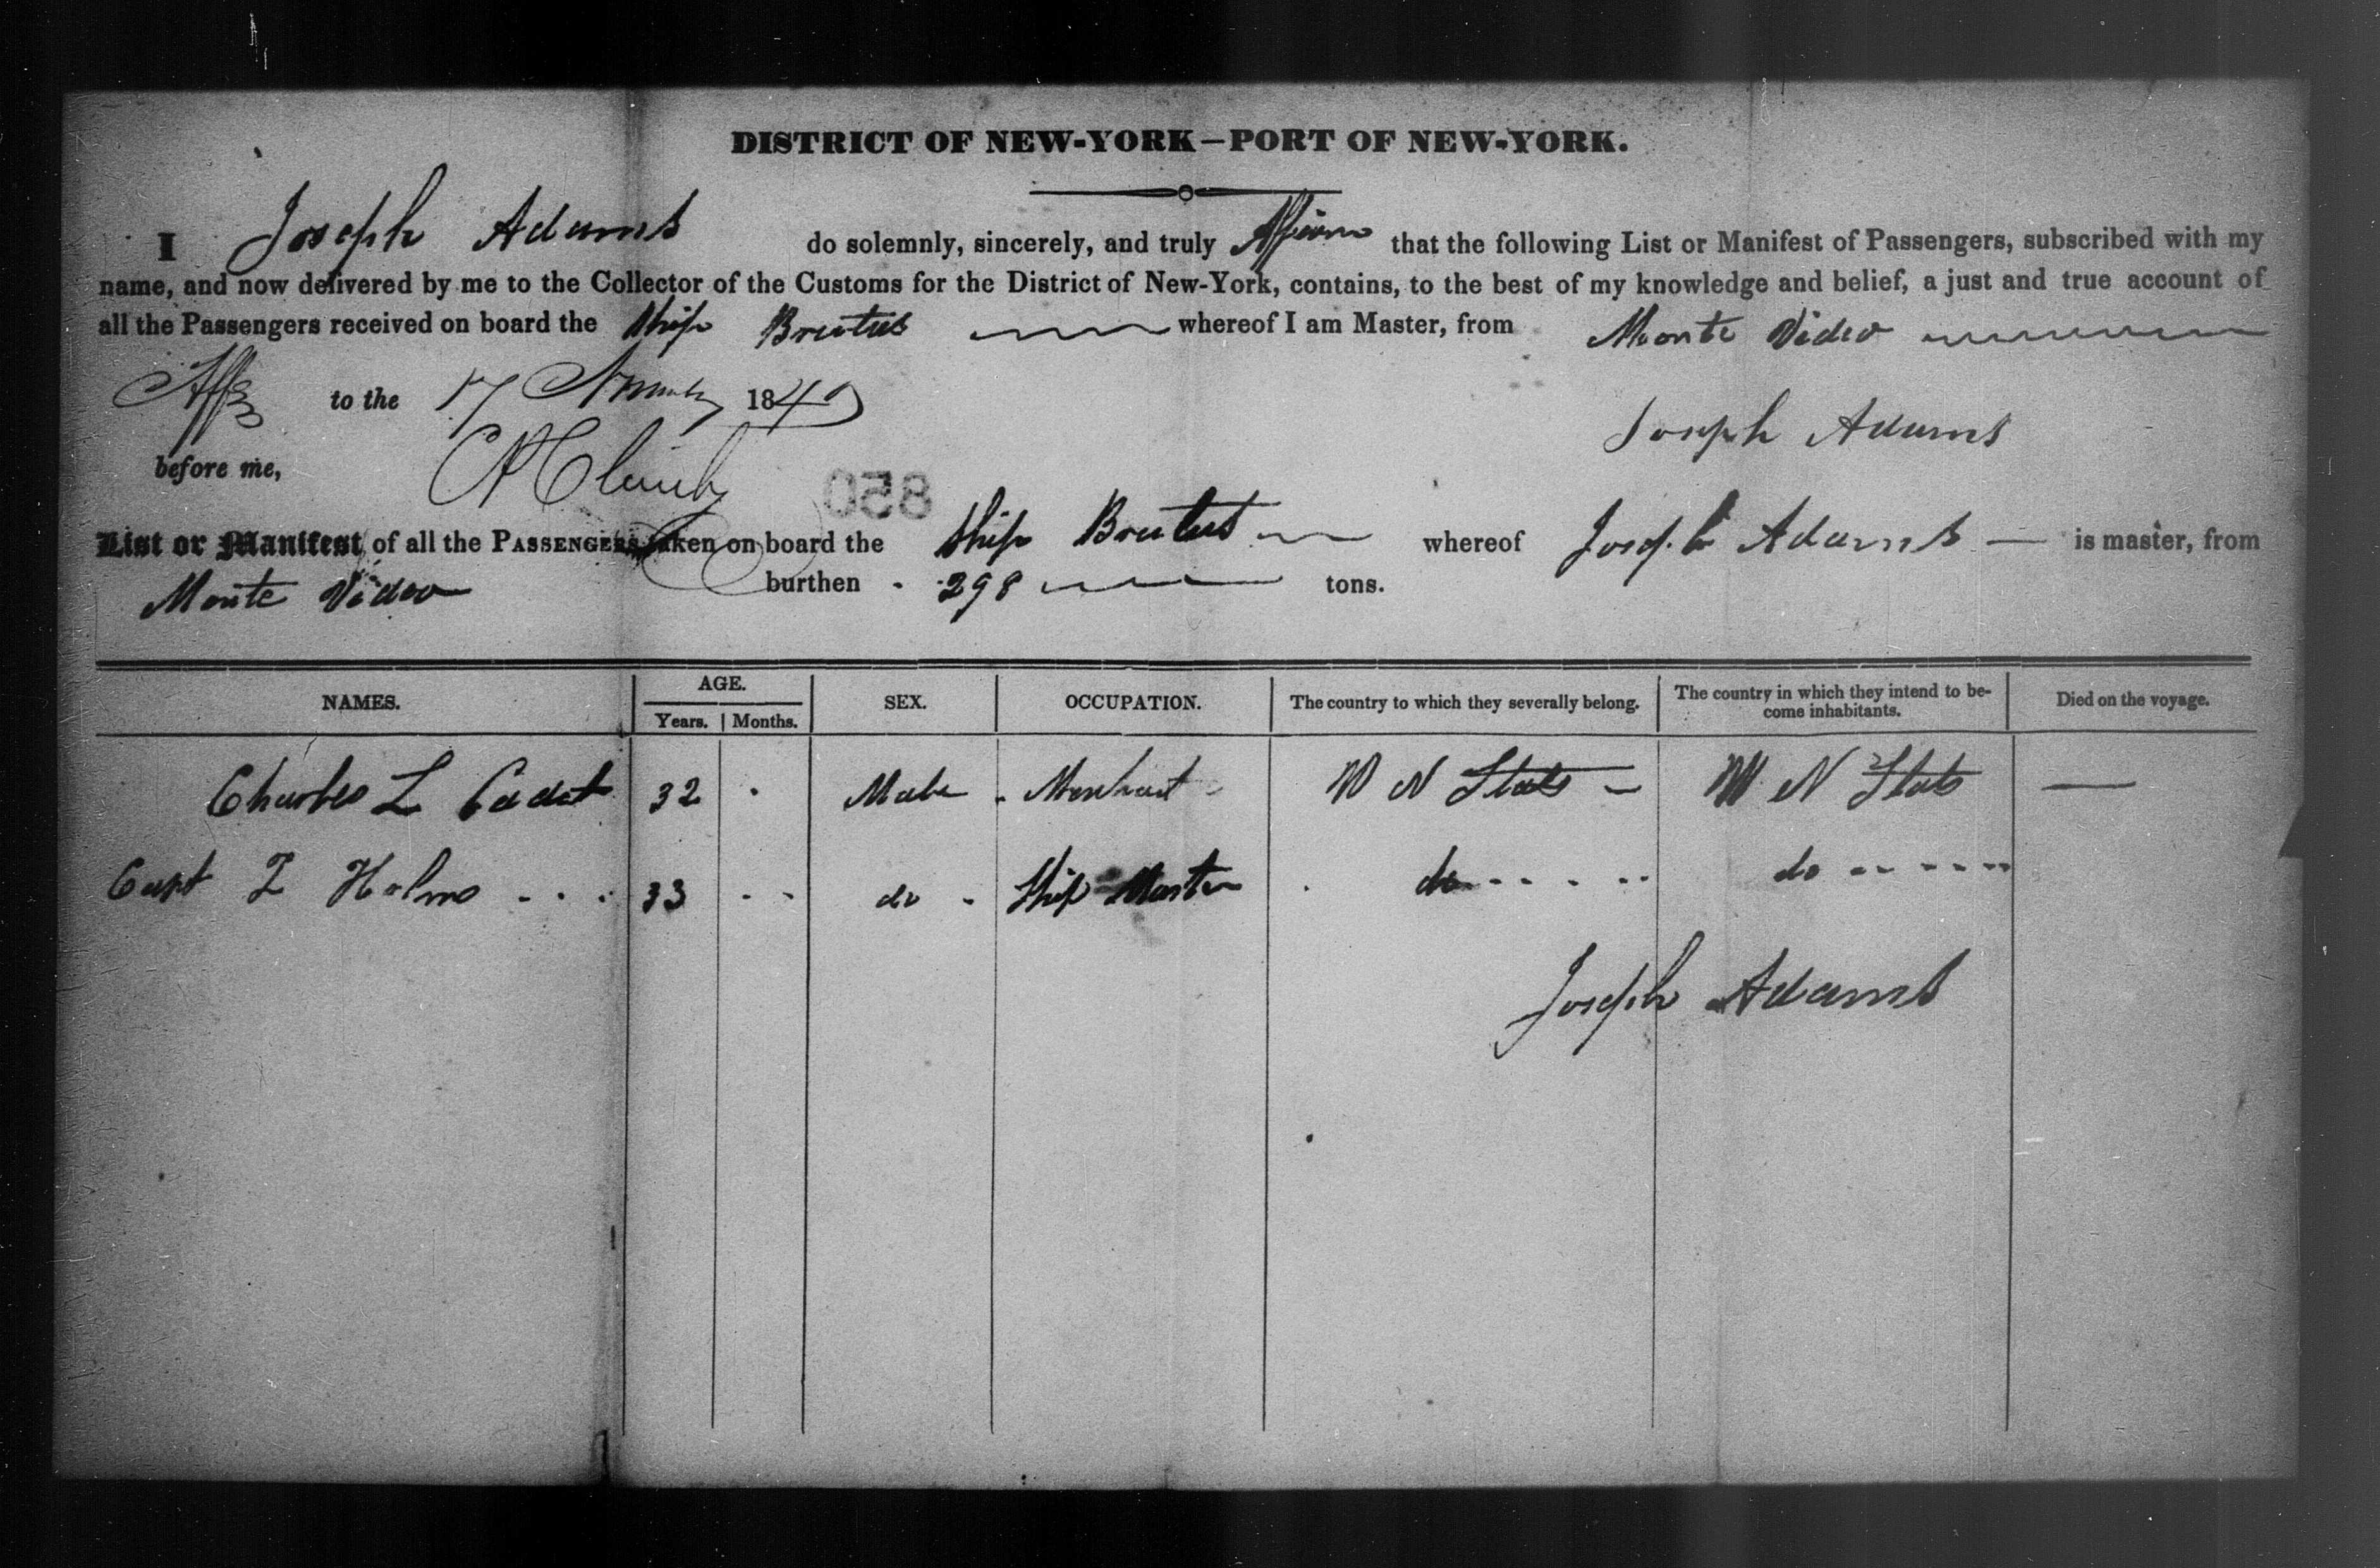 DISTRICT OF NEW-YORK—PORT OF NEW-YORK.
I Joseph Adams do solemnly, sincerely, and truly Affirm that the following List or Manifest of Passengers, subscribed with my
name, and now delivered by me to the Collector of the Customs for the District of New-York, contains, to the best of my knowledge and belief, a just and true account of
all the Passengers received on board the Ship Brutus whereof I am Master, from Monte Video
to the 17 184
Joseph Adams
before me,
850
List or Manifest of all the PASSENGERS taken on board the Ship Brutus whereof Joseph Adams is master, from
Monte Video burthen 298 tons.
NAMES. AGE. SEX. OCCUPATION. The country to which they severally belong. The country in which they intend to be-come inhabitants. Died on the voyage.
Years. Months.
Charles L 32 Male Merchant N States N States —
Capt Holms 33 do Ship Master do do
Joseph Adams